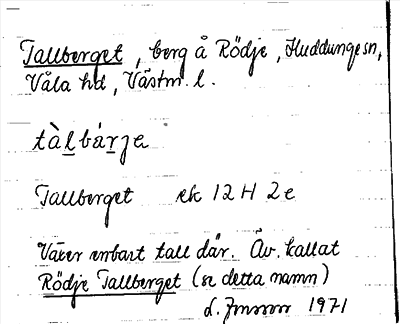 Tallberget, berg å Rödje, Huddunge sn,
Våla hd, Västm. l.
tàl̲bár̲ja
Tallberget ek 12 H 2 e
Växer enbart tall där. Äv. kallat
Rödje Tallberget (se detta namn)
1971